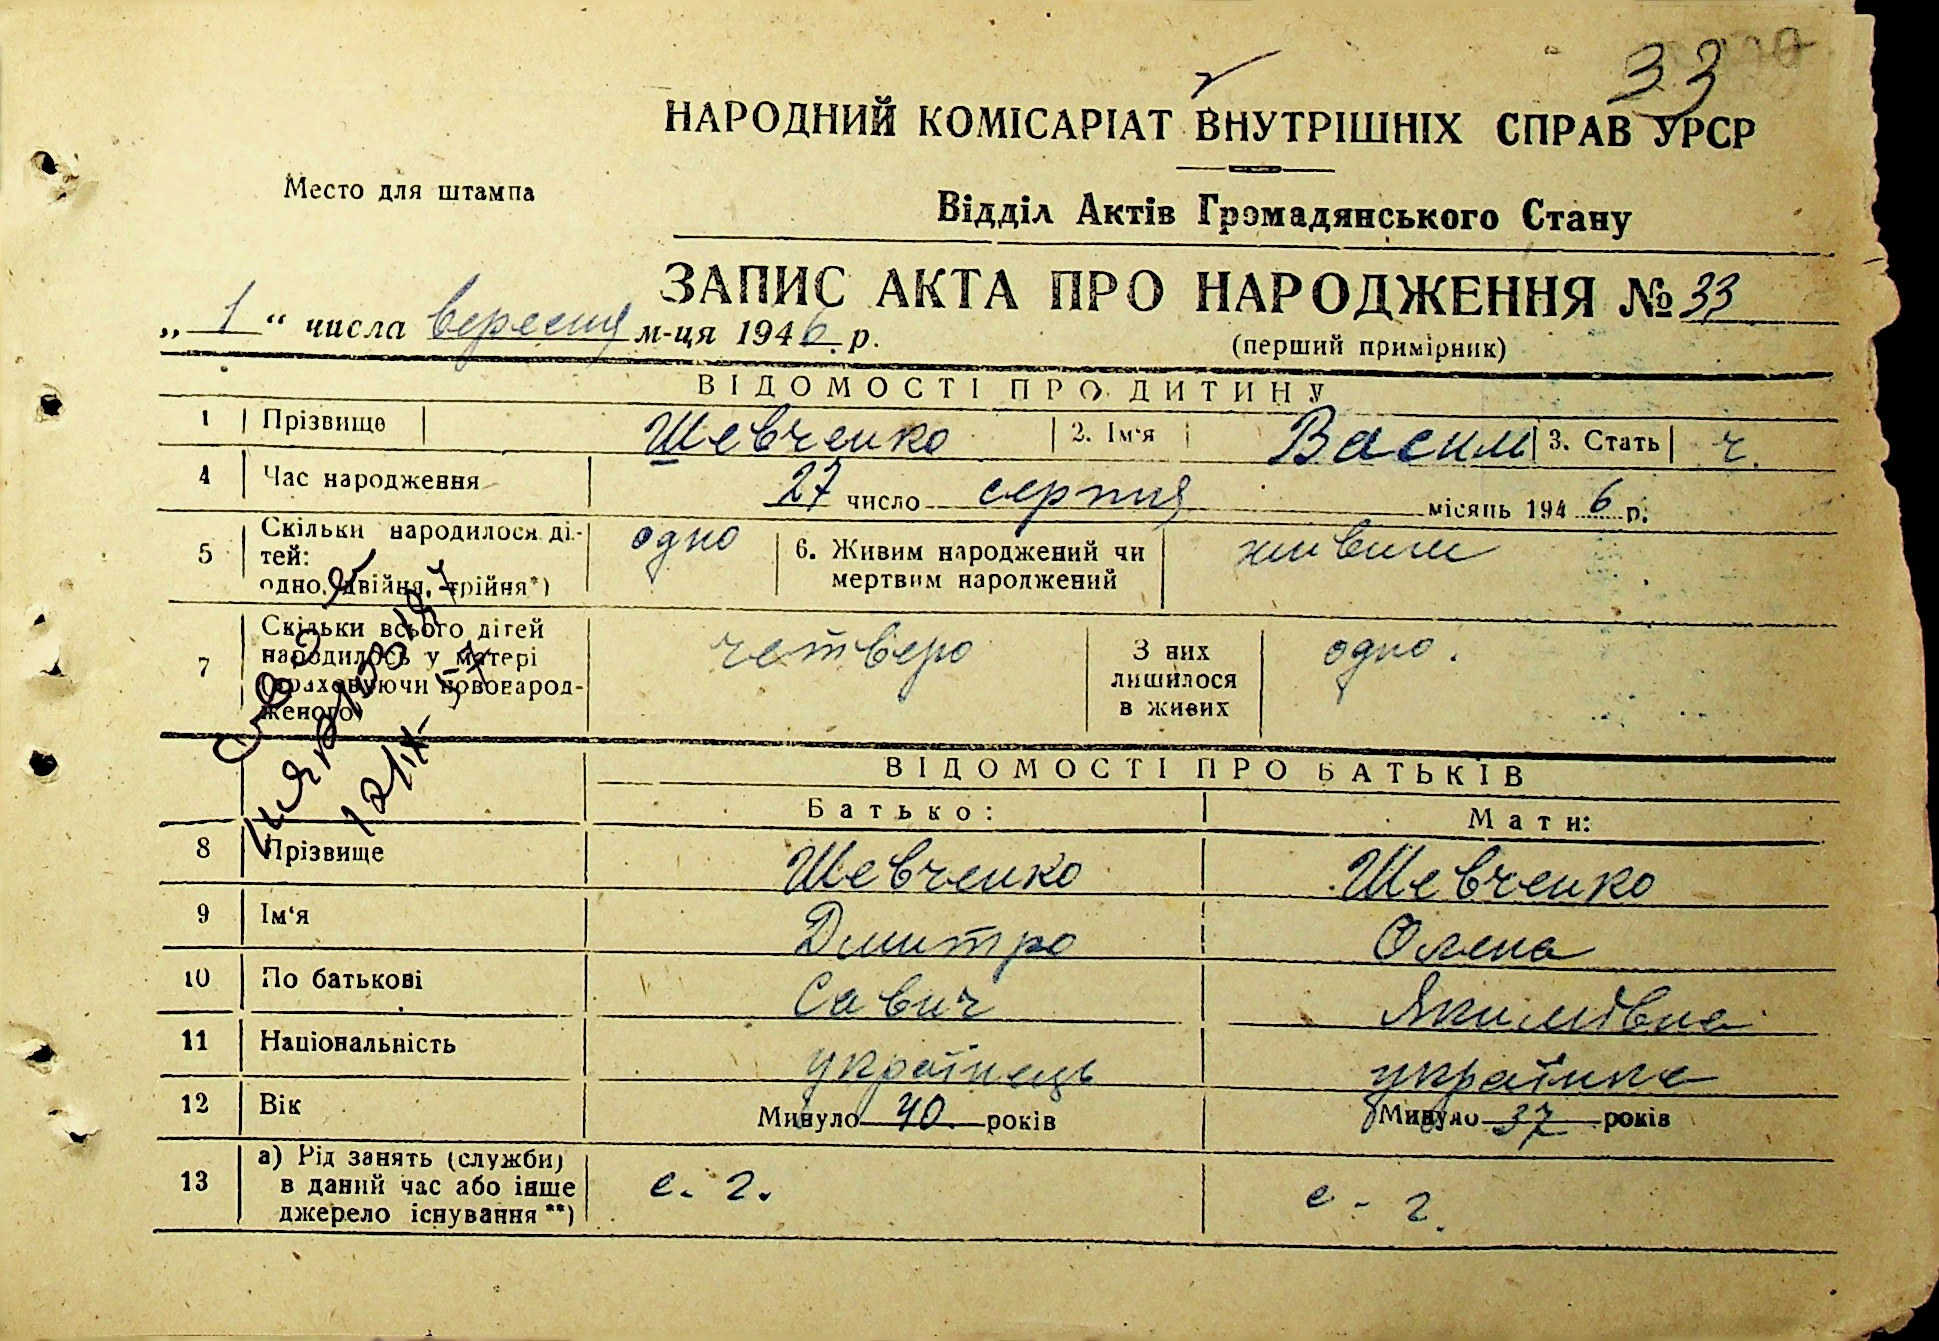 33
НАРОДНИЙ КОМІСАРІАТ ВНУТРІШНІХ СПРАВ УРСР
Место для штампа
Відділ Актів Громадянського Стану
ЗАПИС АКТА ПРО НАРОДЖЕННЯ № 33
„ 1 “ числа вересня м-ця 1946 р.
(перший примірник)
ВІДОМОСТІ ПРО ДИТИНУ
1 Прізвище Шевченко 2. Ім‘я Васил 3. Стать ч.
4 Час народження 27 число серпня місяць 1946 р.
5 Скільки народилося ді-
тей:
одно, двійня, трійня*)
одно
6. Живим народжений чи
мертвим народжений
живим
7 Скільки всього дітей
народилось у матері
враховуючи новонарод-
женого
четверо
З них
лишилося
в живих
одно.
ВІДОМОСТІ ПРО БАТЬКІВ
Батько: Мати:
8 Прізвище Шевченко Шевченко
9 Ім‘я Дмитро Олена
10 По батькові Савич Якимівна
11 Національність українець українка
12 Вік Минуло 40 років Минуло 37 років
13 а) Рід занять (служби)
в даний час або інше
джерело існування **)
с. г. с. г.